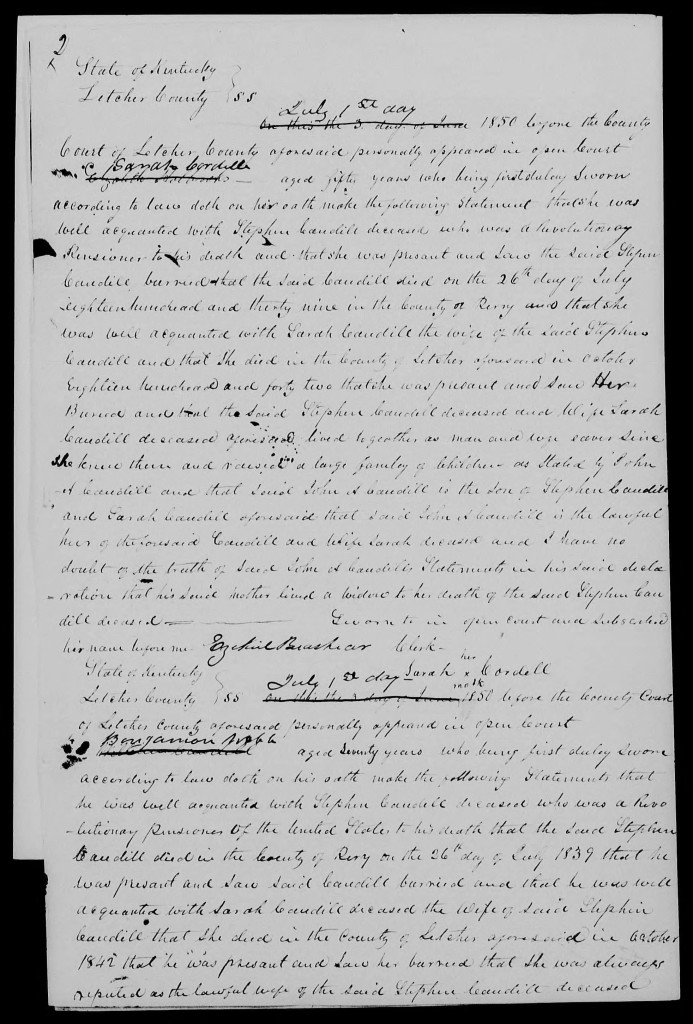 2
State of Kentucky
Letcher County } SS
July 1st day
On this the 3 day of June 1850 before the County
Court of Letcher County aforesaid personally appeared in open Court
Sarah Cordelle
aged fifty years who being first duley Sworn
according to law doth on her oath make the following Statement that she was
will acquanted with Stephen Caudill deceased who was a Revolutionary
Pensioner to his death and that she was presant and saw the said Stephen
Caudill burried that the said Caudill died on the 26th day of July
Eighteen hundread and thirty nine in the County of Perry and that she
was will acquanted with Sarah Caudill the wife of the said Stephen
Caudill and that she died in the County of Letcher aforesaid in October
Eighteen hundread and forty two that she was presant and saw Her
Buried and that the said Stephen Caudill deceased and Wife Sarah
Caudill deceased aforesaid lived together as man and wife eaver Sine
she knew them and raised a large family of Children as Stated by John
A Caudill and that said John A Caudill is the Son of Stephen Caudill
and Sarah Caudill aforesaid that said John A Caudill is the lawful
heir of the foresaid Caudill and Wife Sarah diceased and I have no
doubt of the truth of said John A Caudills Statements in his said decla
-ration that his said mother lived a widow to her death of the said Stephen Cau
dill diceased Sworn to in open court and Subscribed
her name before me Ezekiel Brashear Clerk
her
State of Kentucky July 1st day Sarah x Cordell
mark
Letcher County } SS On this the 3 day of June 1850 before the County Court
of Letcher County aforesaid personally appeared in open Court
Benjamion Webb
aged Seventy years who being first duley Sworn
according to law doth on his oath make the following Statements that
he was well acquanted with Stephen Caudill deceased who was a Revo
-lutionary pensioner of the United States to his death that the said Stephen
Caudill died in the County of Perry on the 26th day of July 1839 that he
was presant and saw said Caudill burried and that he was will
acquanted with Sarah Caudill deceased the Wife of said Stephin
Caudill that she died in the County of Letcher aforesaid in October
1842 that he was presant and saw her burried that she was always
reputed as the lawful wife of the said Stephen Caudill deceased